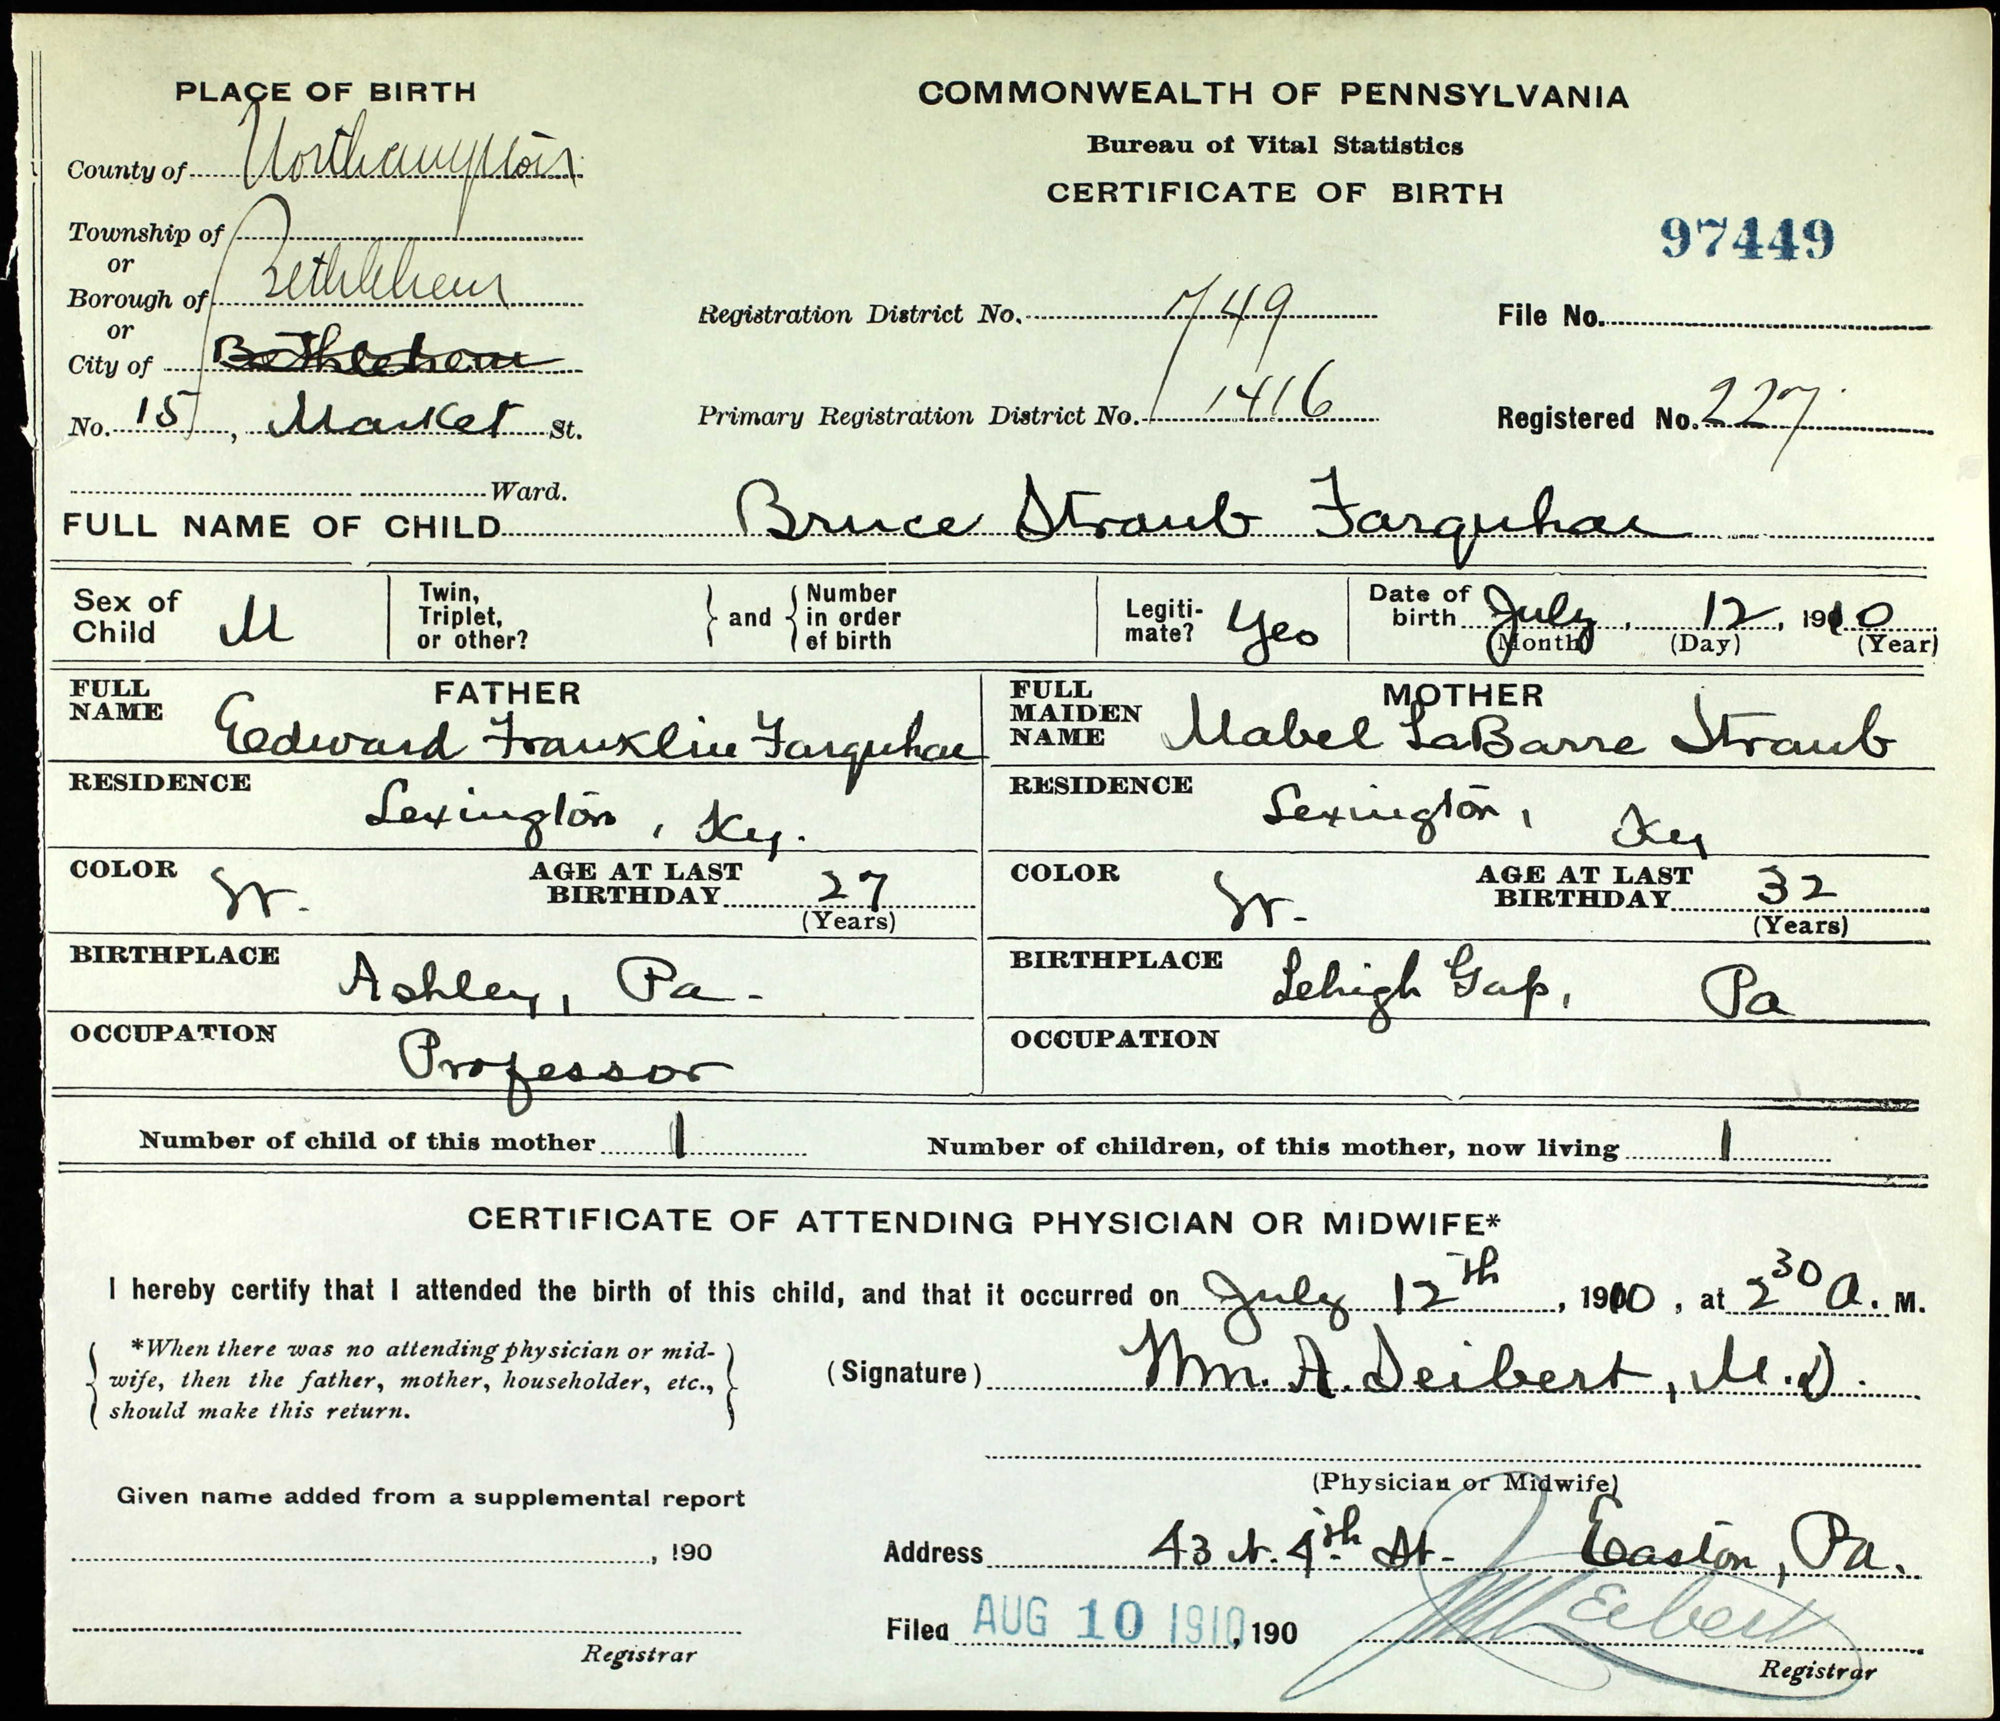 PLACE OF BIRTH
County of Northampton
Township of
or
Borough of Bethlehem
or
City of Bethlehem
No. 15, Market St.
Ward.
COMMONWEALTH OF PENNSYLVANIA
Bureau of Vital Statistics
CERTIFICATE OF BIRTH
97449
Registration District No. 749
File No.
Primary Registration District No. 1416
Registered No. 227
FULL NAME OF CHILD Bruce Straub Farquhar
Sex of Child M
Twin, Triplet, or other?
and
Number in order of birth
Legitimate? Yes
Date of birth July, 12, 1910
(Month) (Day) (Year)
FATHER
FULL NAME Edward Franklin Farquhar
RESIDENCE
Lexington, Ky.
COLOR W.
AGE AT LAST BIRTHDAY 27
(Years)
BIRTHPLACE Ashley, Pa.
OCCUPATION
Professor
MOTHER
FULL MAIDEN NAME Mabel LaBarre Straub
RESIDENCE
Lexington, Ky
COLOR W.
AGE AT LAST BIRTHDAY 32
(Years)
BIRTHPLACE Lehigh Gap, Pa
OCCUPATION
Number of child of this mother 1
Number of children, of this mother, now living 1
CERTIFICATE OF ATTENDING PHYSICIAN OR MIDWIFE*
I hereby certify that I attended the birth of this child, and that it occurred on July 12th, 1910, at 2 30 A. M.
*When there was no attending physician or mid-
wife, then the father, mother, householder, etc.,
should make this return.
(Signature) Wm. A. Seibert, M.D.
(Physician or Midwife)
Given name added from a supplemental report
, 190
Registrar
Address 43 N. 4th St. Easton, Pa.
Filed AUG 10 1910, 190
Registrar